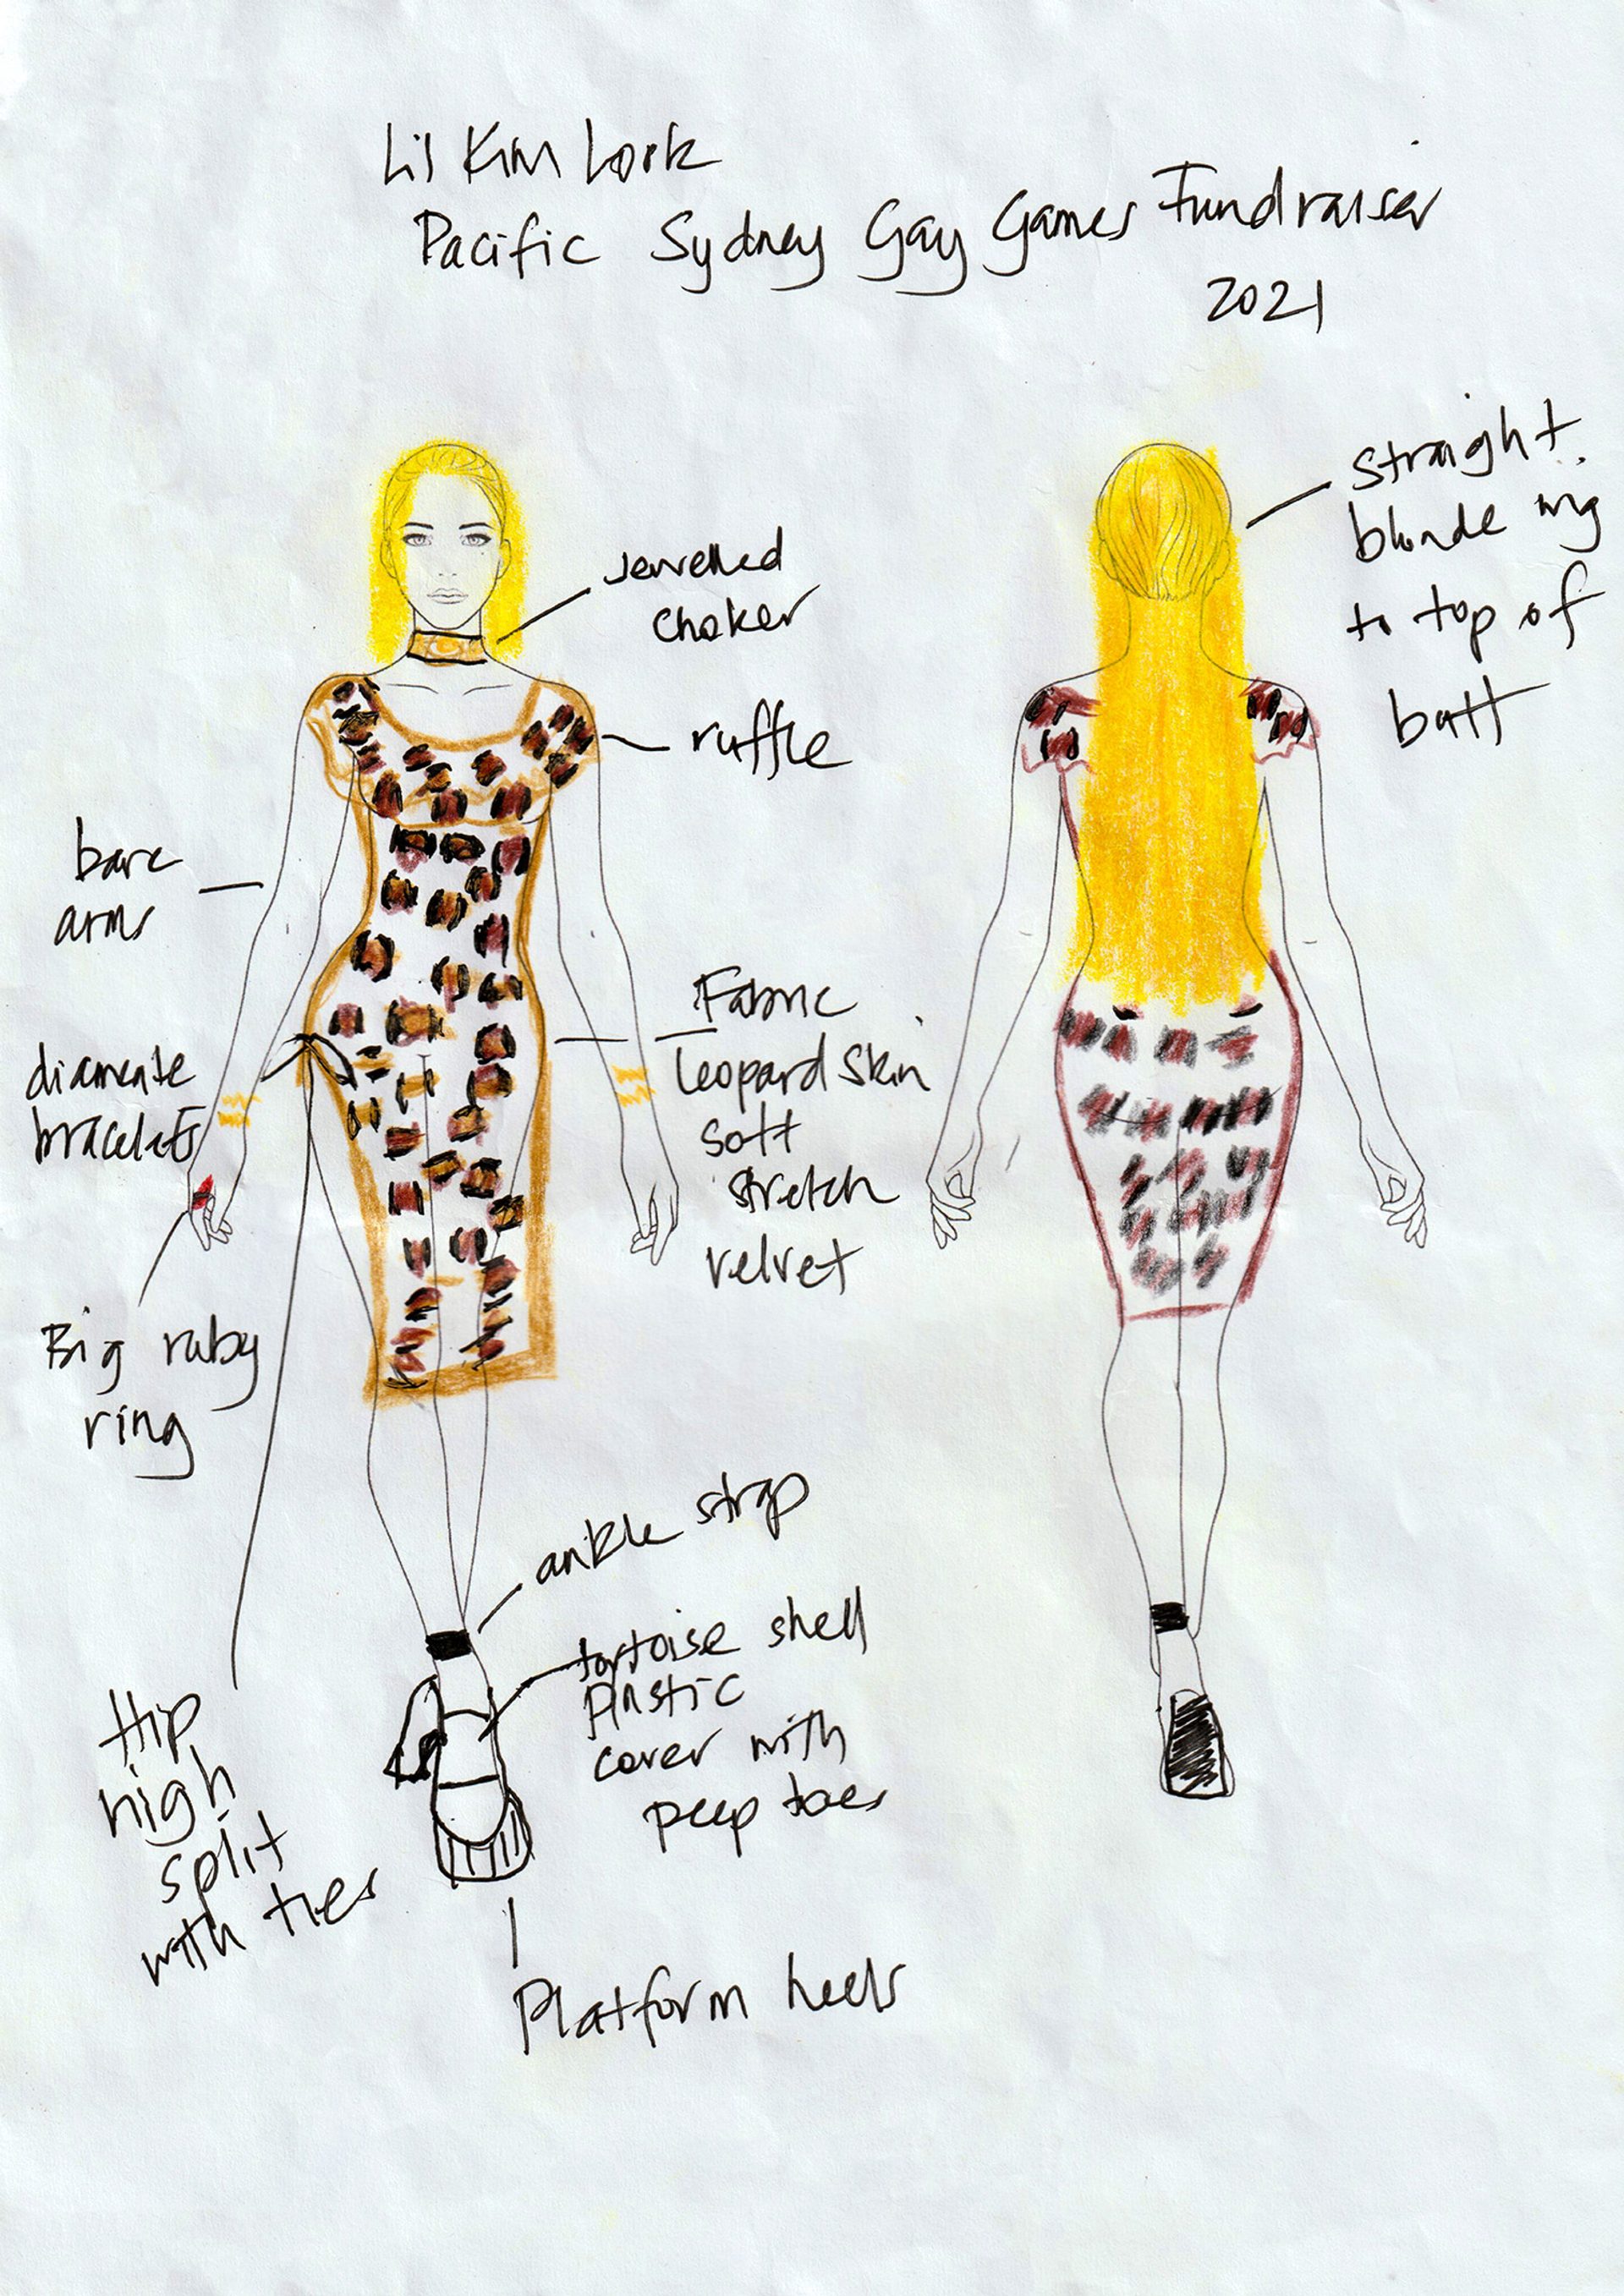 Lil Kim Look
Pacific Sydney Gay Games Fundraiser
2021
Straight
blonde wig
to top of
butt
Jewelled
choker
ruffle
bare
arms
Fabric
Leopard Skin
soft
stretch
velvet
diamente
bracelets
Big ruby
ring
ankle strap
tortoise shell
plastic
cover with
peep toes
Hip
high
split
with ties
Platform heels